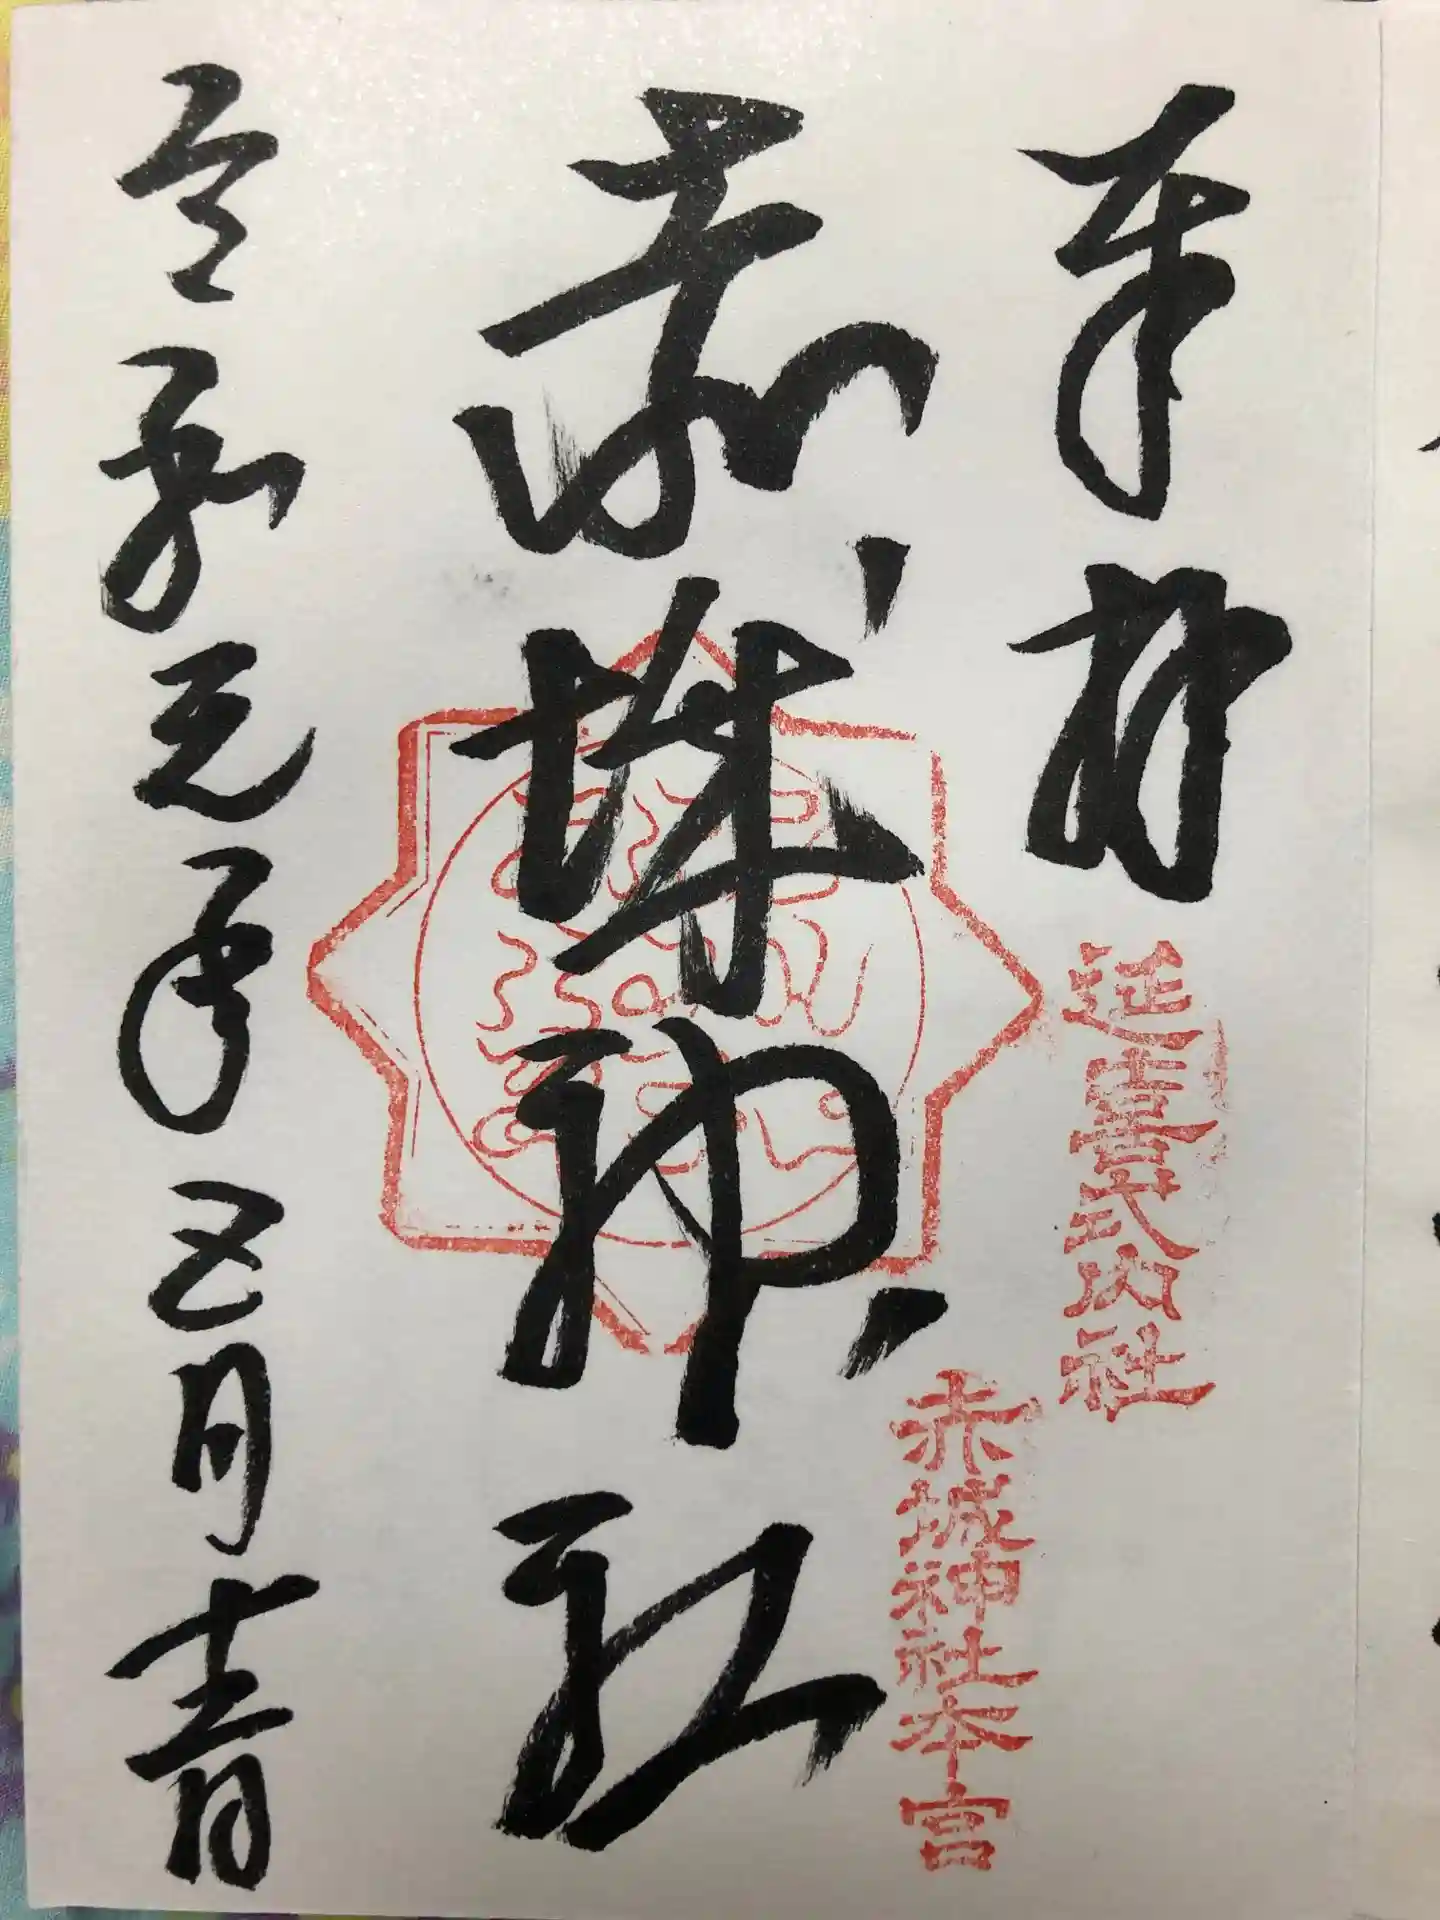 奉拝
延喜式内社
赤城神社
赤城神社本宮
令和元年五月十二日